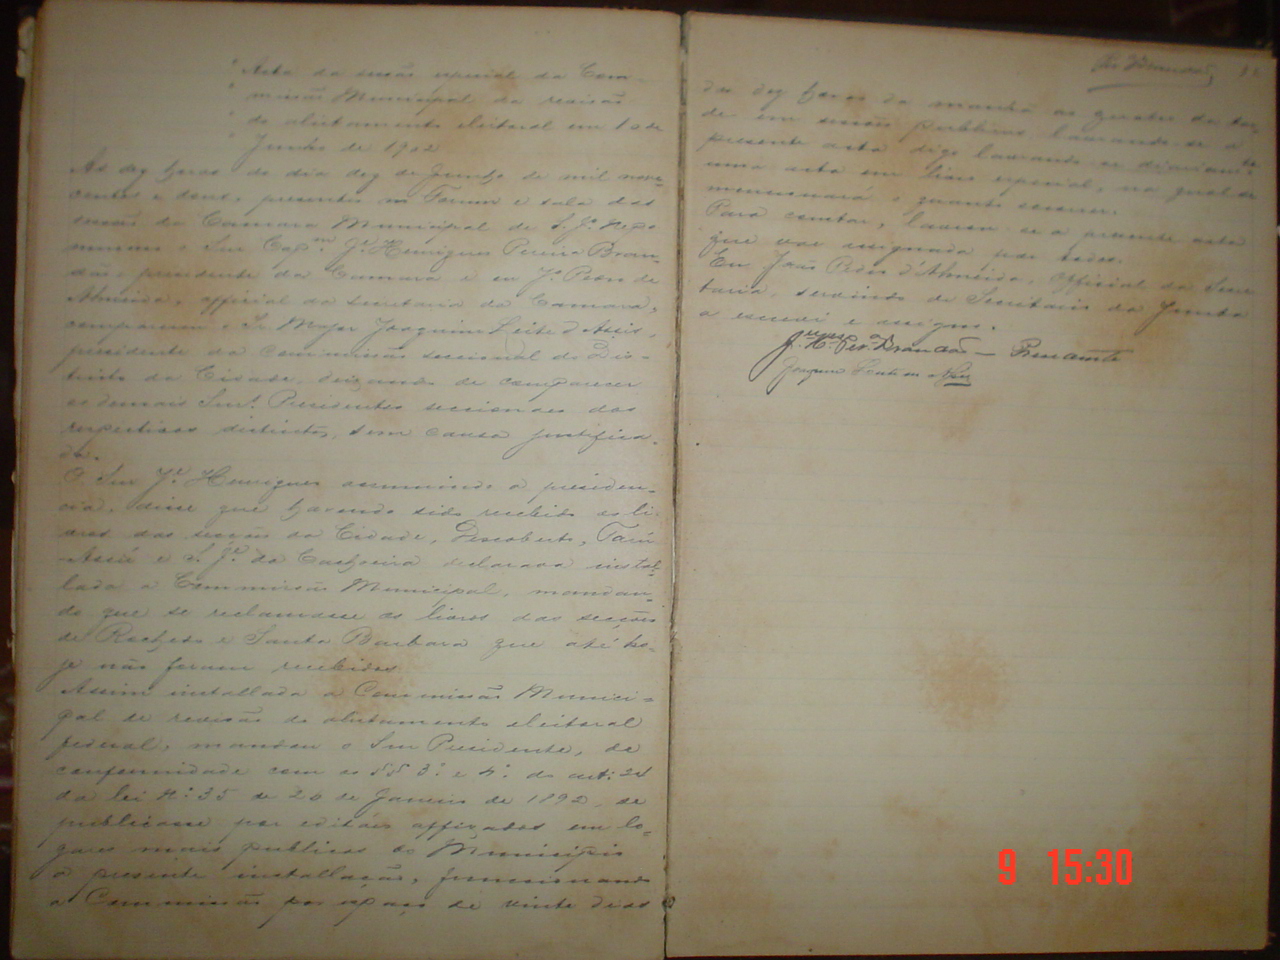 Acta da sessão especial da Com-
missão Municipal da revisão
do alistamento eleitoral em 10 de
Junho de 1902
As dez horas do dia dez de Junho de mil nove-
centos e dous, presentes no Forum e sala das
sessões da Camara Municipal de S. Jº Nepo
muceno o Snr Capᵐ Jᵉ Henriques Pereira Bran-
dão, presidente da Camara e eu Jº Pedro de
Almeida, official da secretaria da Camara,
compareceu o Sr. Major Joaquim Leite d'Assis,
presidente da commissão seccional do Dis-
tricto da Cidade, deixando de comparecer
os demais Snrˢ Presidentes seccionaes dos
respectivos districtos, sem causa justifica-
da.
O Snr Jᵉ Henriques assumindo a presiden-
cia, disse que havendo sido recebido os li-
vros das secções da Cidade, Descoberto, Tarú
-Assú e S. Jº da Cachoeira declarava instal-
lada a Commissão Municipal, mandan-
do que se reclamasse os livros das secções
de Rochedo e Santa Barbara que até ho-
je não foram recebidos.
Assim installada a Commissão Munici-
pal de revisão do alistamento eleitoral
federal, mandou o Snr Presidente, de
conformidade com os §§ 3º e 4º do art: 24
da lei Nº 35 de 26 de Janeiro de 1892, se
publicasse por editáes affixados em lo-
gares mais publicos do Municipio
a presente installação, funccionando
a Commissão por espaço de vinte dias
Per Brandão
das dez horas da manhã as quatro da tar-
de em sessões publicas, lavrando-se a
presente acta digo lavrando-se diariamᵗᵉ
uma acta em livro especial, na qual se
mencionará o quanto occorrer.
Para constar, lavrou-se a presente acta
que vae assignada por todos.
Eu João Pedro d'Almeida, Official da Secre
taria, servindo de Secretario da Junta
a escrevi e assigno.
J. Hᵉ Per Brandão — Presidente
Joaquim Leite de Assis
9 15:30